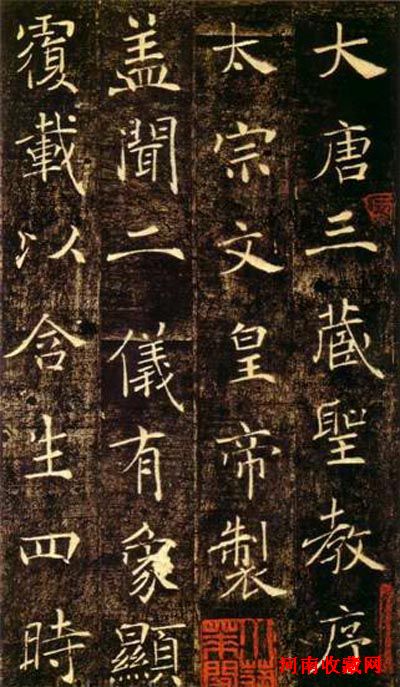 大唐三藏聖教序
太宗文皇帝製
盖聞二儀有象顯
覆載以含生四時
河南收藏网